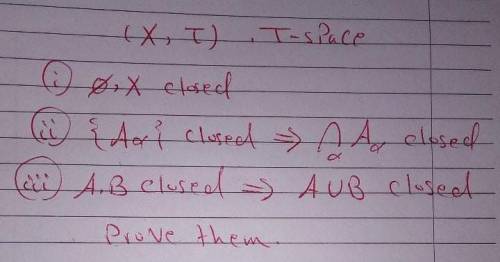 (X, τ) . T-space
(i) ∅, X closed
(ii) {Aα} closed ⇒ ⋂α Aα closed
(iii) A, B closed ⇒ A ∪ B closed
Prove them.